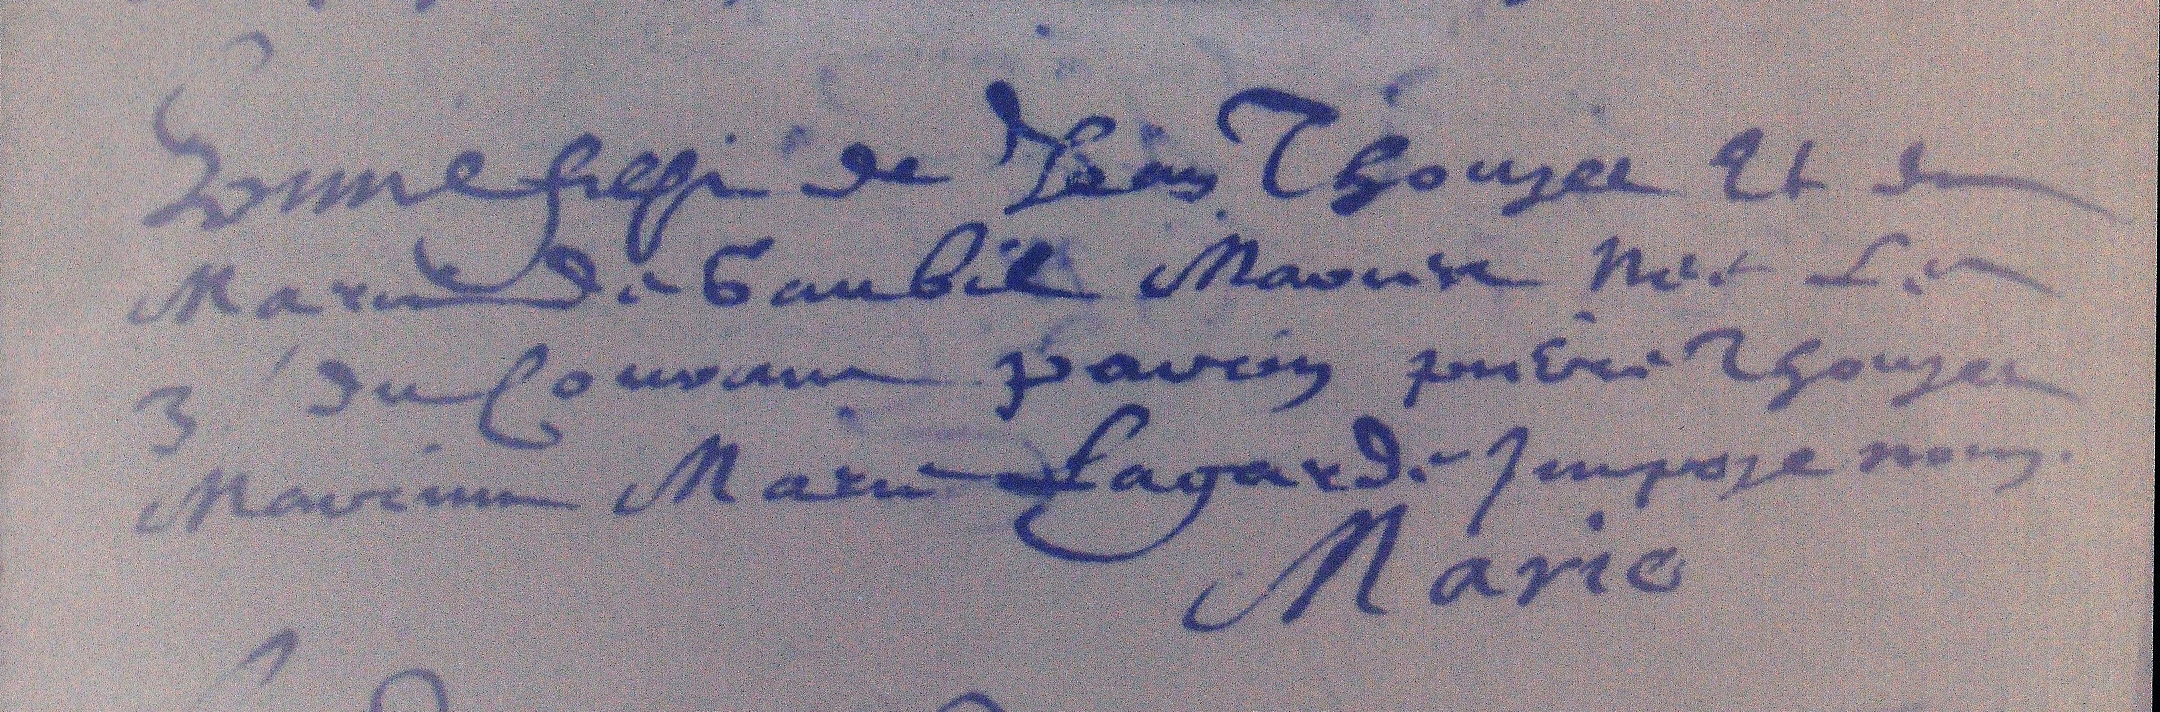 une fille de Jean Thouzet Et de
Marie de Saubil Mariee Nee Le
3 du Courant parrin pierre Thouzet
Marinne Marie Lagarde Impoze nom.
Marie